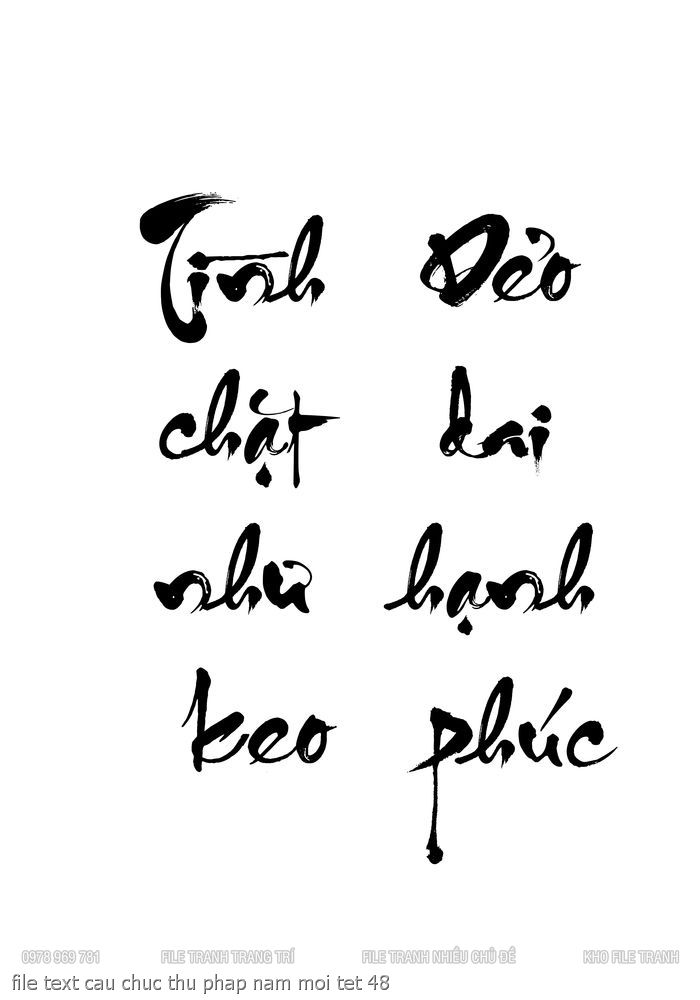 Tình
chặt
như
keo
Dẻo
dai
hạnh
phúc
0978 969 781 FILE TRANH TRANG TRÍ FILE TRANH NHIỀU CHỦ ĐỀ KHO FILE TRANH
file text cau chuc thu phap nam moi tet 48